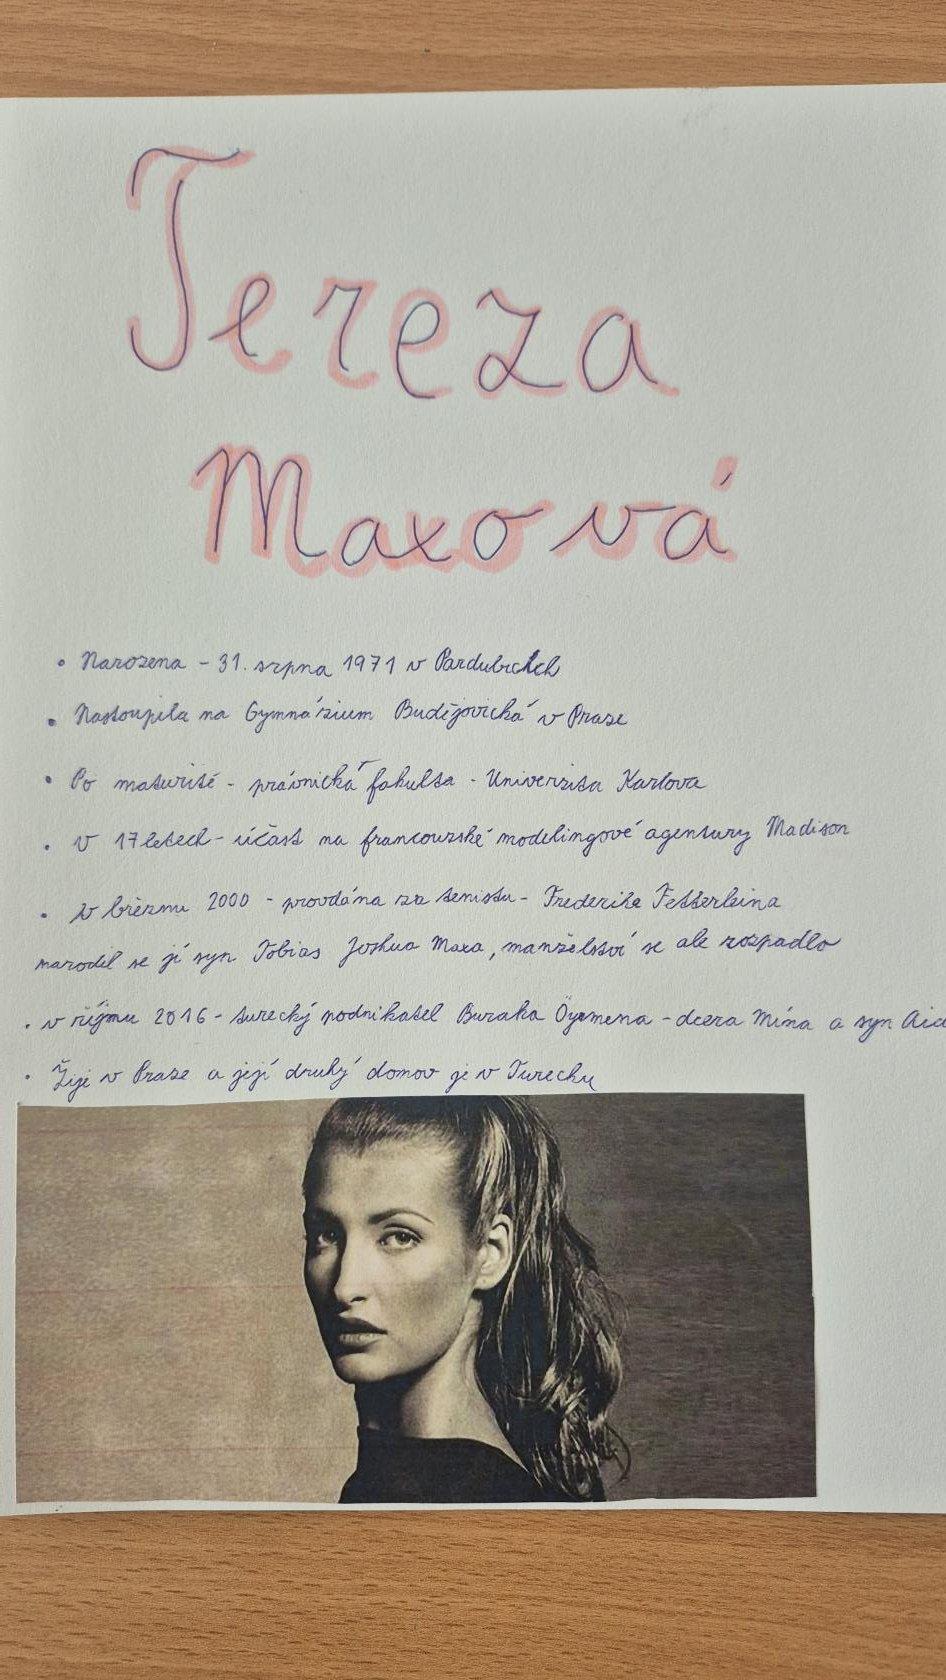 Tereza
Maxová
• Narozena - 31. srpna 1971 v Pardubicích
• Nastoupila na Gymnázium Budějovická v Praze
• Po maturitě - právnická fakulta - Univerzita Karlova
• v 17 letech - účast na francouzské modelingové agentury Madison
• v březnu 2000 - provdána za tenistu - Frederika Fetterleina
narodil se jí syn Tobias Joshua Maxa, manželství se ale rozpadlo
• v říjmu 2016 - turecký podnikatel Buraka Öymena - dcera Mína a syn Aid
• Žije v Praze a její druhý domov je v Turecku